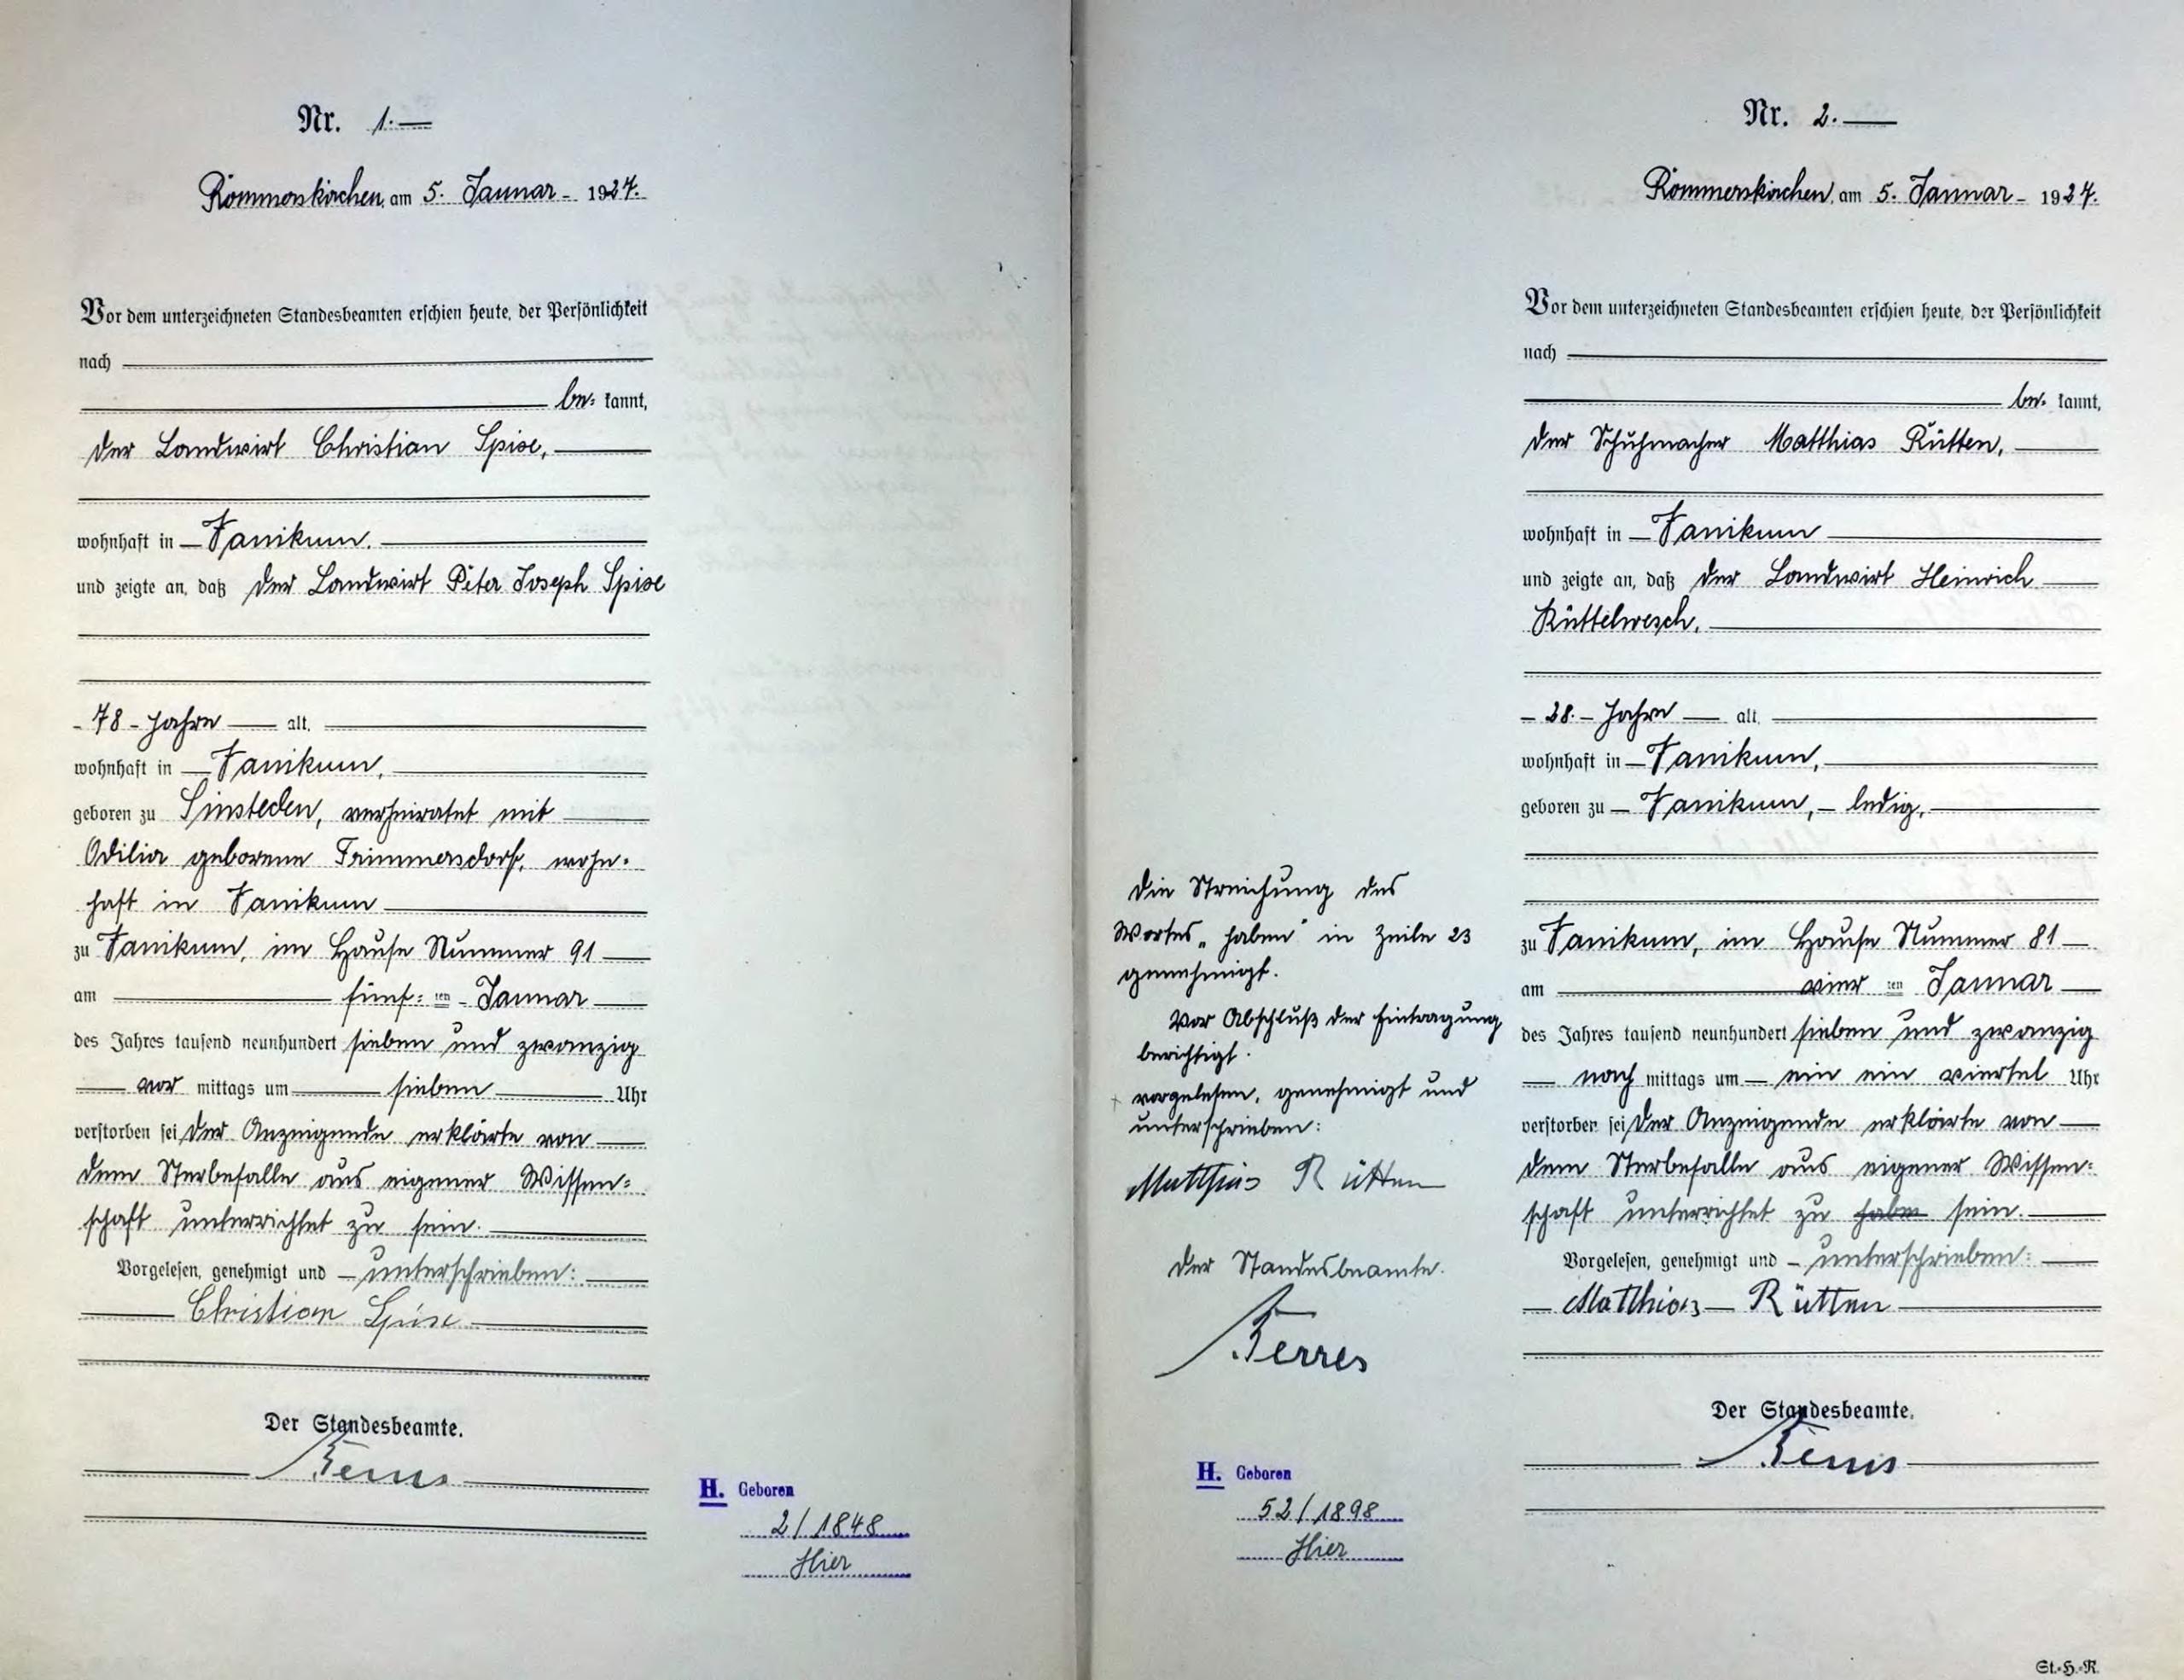 Nr. 1.
Rommerskirchen, am 5. Januar 1927.
Vor dem unterzeichneten Standesbeamten erschien heute, der Persönlichkeit
nach
be= kannt,
der Landwirt Christian Spix,
wohnhaft in Vanikum.
und zeigte an, daß der Landwirt Peter Joseph Spix
- 78 - Jahre alt,
wohnhaft in Vanikum,
geboren zu Sinsteden, verheiratet mit
Odilia geborene Frimmersdorf, wohn=
haft in Vanikum
zu Vanikum, im Hause Nummer 91
am fünf= ten Januar
des Jahres tausend neunhundert sieben und zwanzig
vor mittags um sieben Uhr
verstorben sei der Anzeigende erklärte von
dem Sterbefalle aus eigener Wissen=
schaft unterrichtet zu sein.
Vorgelesen, genehmigt und unterschrieben:
Christian Spix
Der Standesbeamte.
Ferres
H. Geboren
2/1848
Hier
Die Streichung des
Wortes „haben" in Zeile 23
genehmigt.
Vor Abschluß der Eintragung
berichtigt.
vorgelesen, genehmigt und
unterschrieben:
Matthias Rütten
Der Standesbeamte.
Ferres
H. Geboren
52/1898
Hier
Nr. 2.
Rommerskirchen, am 5. Januar 1927.
Vor dem unterzeichneten Standesbeamten erschien heute, der Persönlichkeit
nach
be= kannt,
der Schuhmacher Matthias Rütten,
wohnhaft in Vanikum
und zeigte an, daß der Landwirt Heinrich
Rüttelwesch,
- 28. - Jahre alt,
wohnhaft in Vanikum,
geboren zu Vanikum, ledig,
zu Vanikum, im Hause Nummer 81
am vier ten Januar
des Jahres tausend neunhundert sieben und zwanzig
nach mittags um ein ein viertel Uhr
verstorben sei der Anzeigende erklärte von
dem Sterbefalle aus eigener Wissen=
schaft unterrichtet zu haben sein.
Vorgelesen, genehmigt und unterschrieben:
Matthias Rütten
Der Standesbeamte.
Ferres
St.-H.-R.